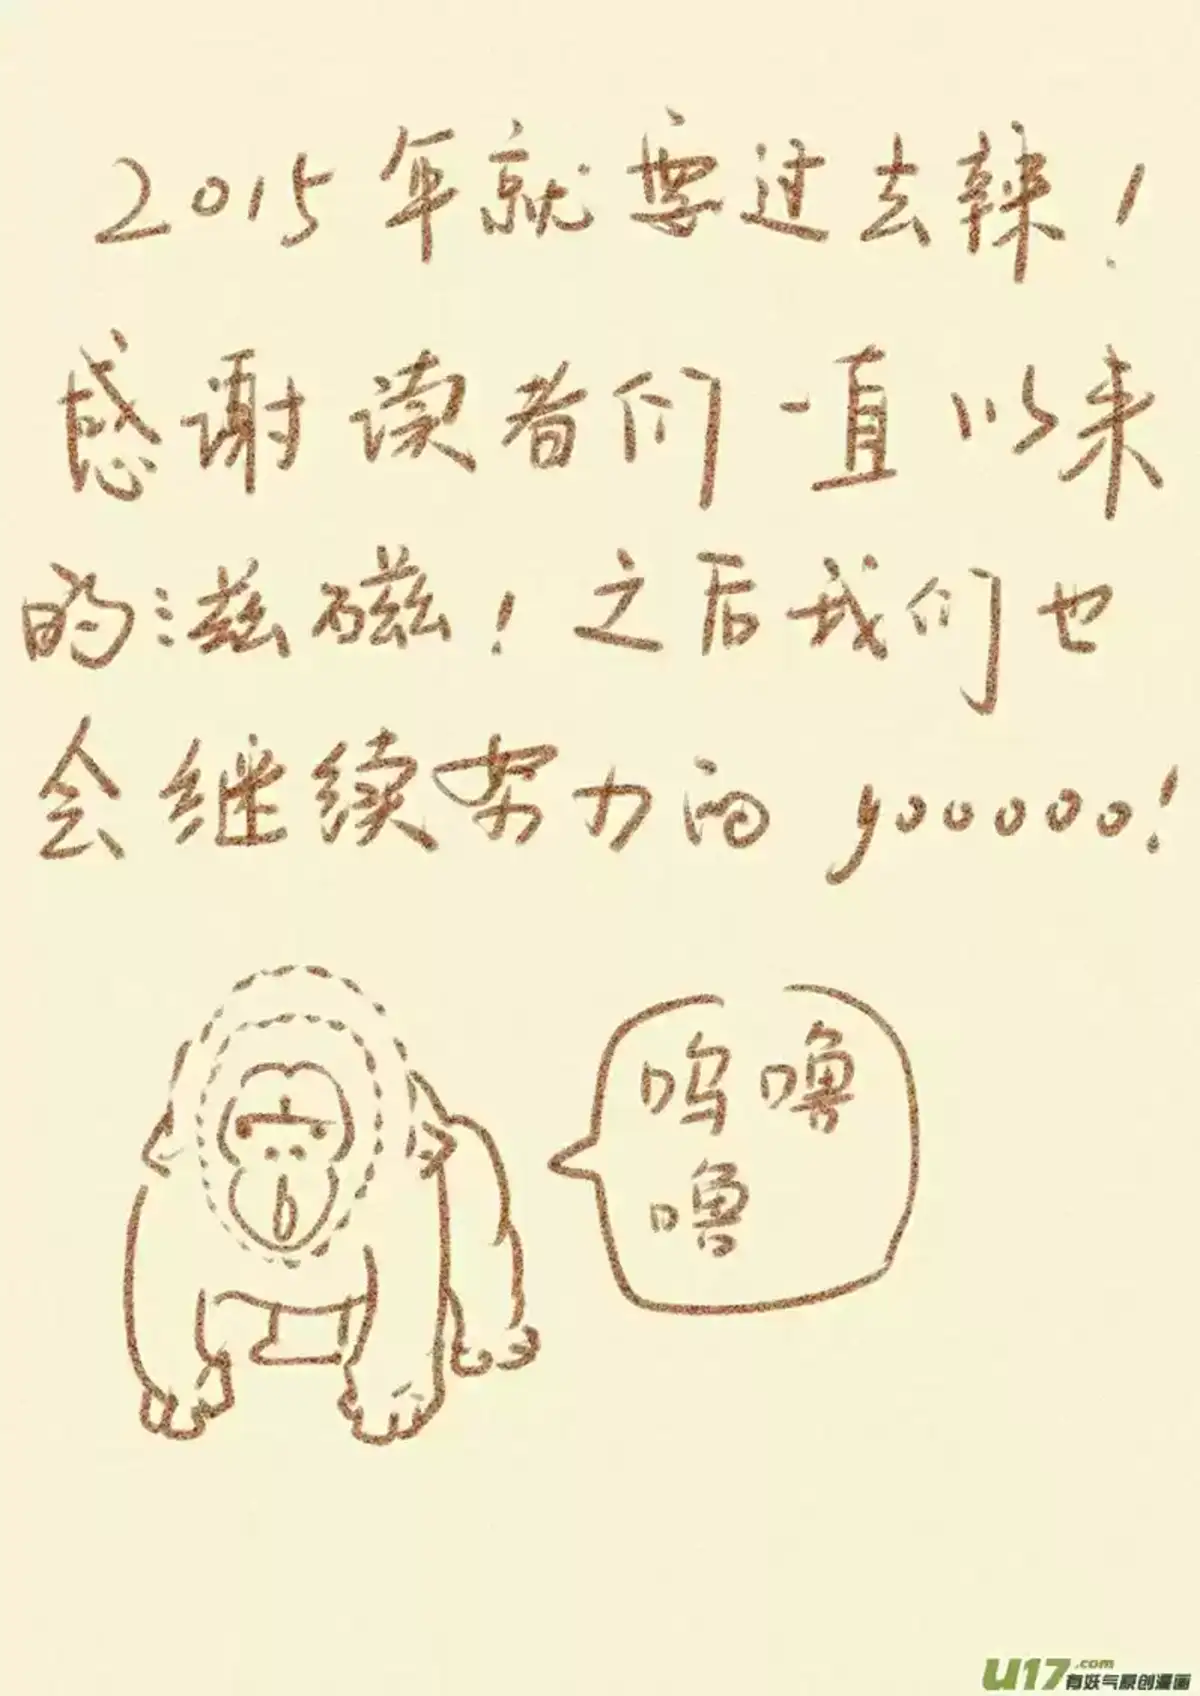 2015年就要过去辣!
感谢读者们一直以来
的滋磁!之后我们也
会继续努力的yooooo!
呜噜
噜
U17.com
有妖气原创漫画